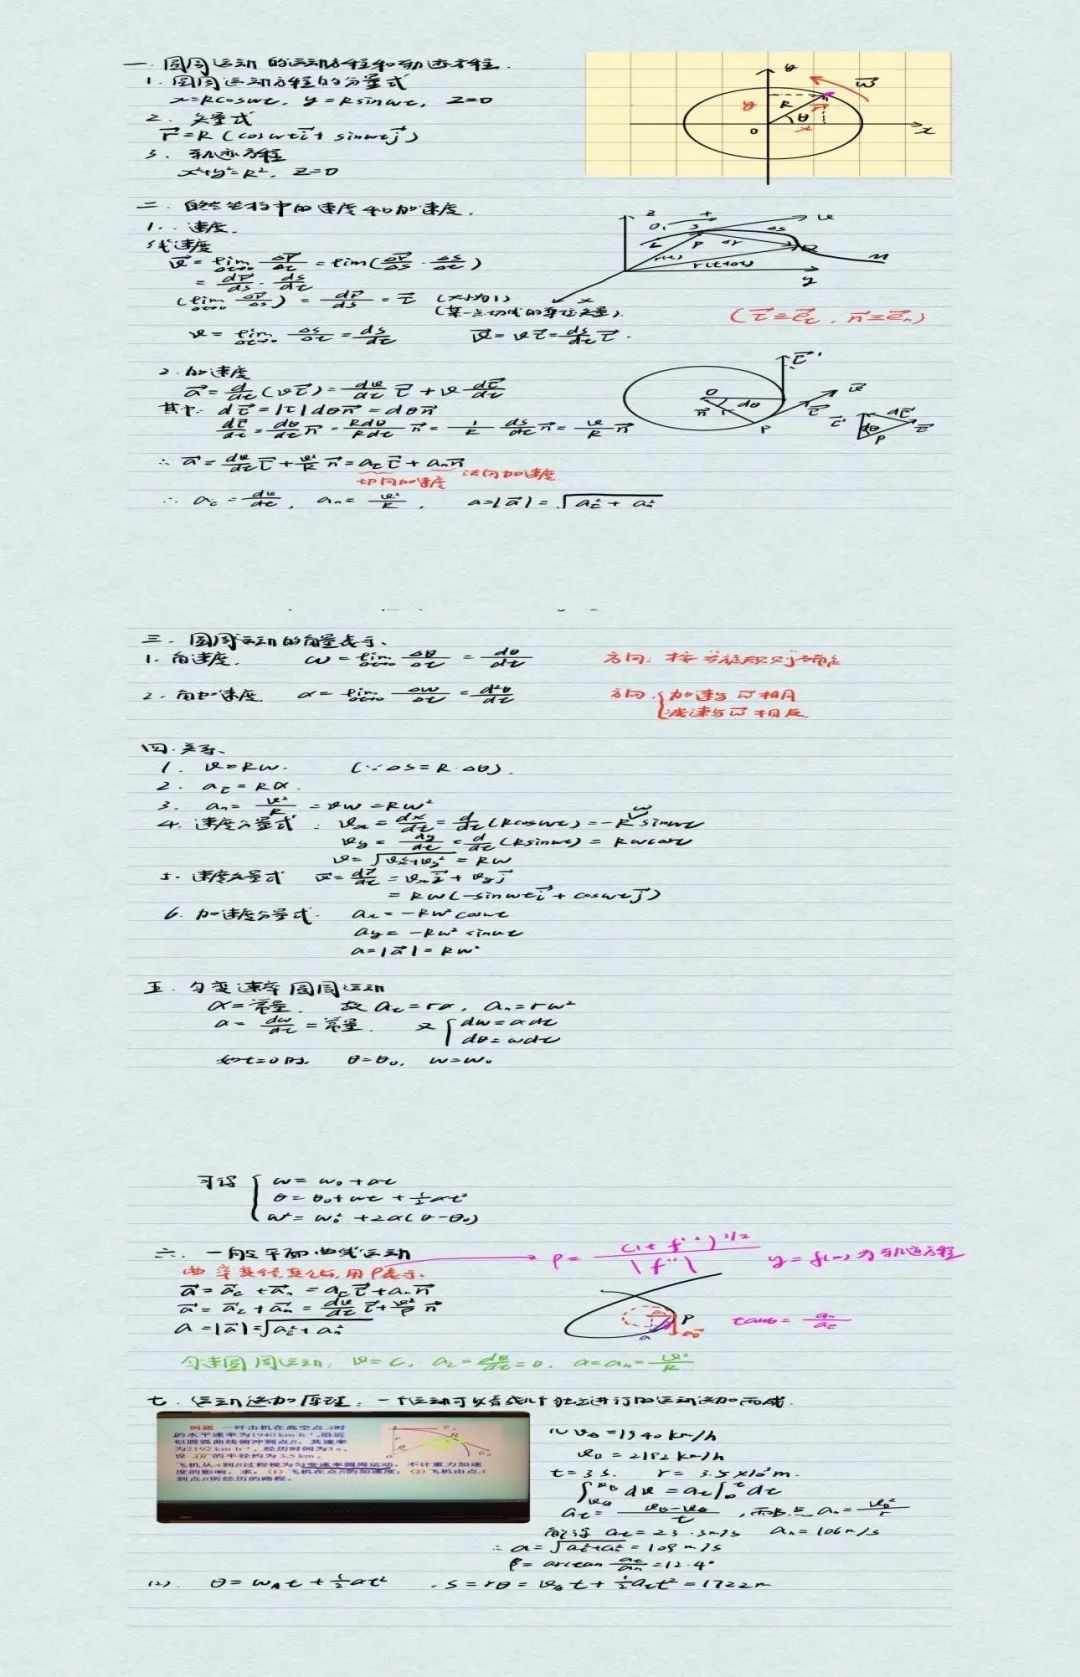 一. 圆周运动的运动方程和轨迹方程.
1. 圆周运动方程的分量式
x=Rcosωt, y=Rsinωt, z=0
2. 矢量式
r⃗=R(cosωt i⃗+sinωt j⃗)
3. 轨迹方程
x²+y²=R², z=0
y
ω⃗
R
θ
x
o
x
二. 自然坐标中的速度和加速度.
1. 速度.
线速度
v⃗=lim Δt→0 Δr⃗/Δt = lim(Δr⃗/Δs · Δs/Δt)
= dr⃗/ds · ds/dt
(lim Δt→0 Δr⃗/Δs) = dr⃗/ds = τ⃗ (大小为1)
(某一点切线的单位矢量).
(τ⃗≡e⃗t, n⃗≡e⃗n)
v=lim Δt→0 Δs/Δt = ds/dt v⃗=vτ⃗=ds/dt τ⃗.
2. 加速度
a⃗=d/dt(vτ⃗)=dv/dt τ⃗+v dτ⃗/dt
其中: dτ⃗=|τ|dθn⃗=dθn⃗
dτ⃗/dt=dθ/dt n⃗=Rdθ/Rdt n⃗=1/R ds/dt n⃗=v/R n⃗
∴ a⃗=dv/dt τ⃗+v²/R n⃗=aττ⃗+ann⃗
切向加速度 法向加速度
∴ aτ=dv/dt, an=v²/R, a=|a⃗|=√(aτ²+an²)
三. 圆周运动的角量表示、
1. 角速度. ω=lim Δt→0 Δθ/Δt=dθ/dt 方向: 按右手螺旋则确定
2. 角加速度. α=lim Δt→0 Δω/Δt=d²θ/dt 方向{加速与ω⃗相同
减速与ω⃗相反
四. 关系、
1. v=Rω. (∵Δs=R·Δθ).
2. aτ=Rα.
3. an=v²/R=vω=Rω²
4. 速度分量式: vx=dx/dt=d/dt(Rcosωt)=-Rωsinωt
vy=dy/dt=d/dt(Rsinωt)=Rωcosωt
v=√(vx²+vy²)=Rω
5. 速度矢量式 v⃗=dr⃗/dt=vx i⃗+vy j⃗
=Rω(-sinωt i⃗+cosωt j⃗)
6. 加速度分量式. ax=-Rω²cosωt
ay=-Rω²sinωt
a=|a⃗|=Rω²
五. 匀变速率圆周运动
α=常量, 故aτ=rα, an=rω²
α=dω/dt=常量. 又{dω=αdt
dθ=ωdt
如t=0时. θ=θ0, ω=ω0
可得{ω=ω0+αt
θ=θ0+ωt+½αt²
ω²=ω0²+2α(θ-θ0)
六. 一般平面曲线运动 → ρ=(1+f'²)^3/2/|f''| y=f(x)为轨迹方程
曲率半径变化, 用ρ表示.
a⃗=a⃗τ+a⃗n=aττ⃗+ann⃗
a⃗=a⃗τ+a⃗n=dv/dt τ⃗+v²/ρ n⃗
a=|a⃗|=√(aτ²+an²)
tanθ=an/aτ
匀速圆周运动: v=C, aτ=dv/dt=0, a=an=v²/R
七. 运动迭加原理: 一个运动可以看成几个独立进行的运动迭加而成.
例题 一歼击机在高空点A时
的水平速率为1940km·h⁻¹,沿近
似圆弧曲线俯冲到点B, 其速率
为2192km·h⁻¹, 经历时间为3s,
设AB的半径约为3.5km,
飞机从A到B过程视为匀变速率圆周运动, 不计重力加速
度的影响, 求: (1) 飞机在点B的加速度; (2) 飞机由点A
到点B所经历的路程.
(1) vA=1940km/h
vB=2192km/h
t=3s. r=3.5×10³m.
∫vA vB dv=aτ∫0 t dt
aτ=(vB-vA)/t, 而B点an=vB²/r
aτ=23.3m/s an=106m/s
∴ a=√(aτ²+an²)=109m/s
β=arctan aτ/an=12.4°
(2). θ=ωAt+½αt² . s=rθ=vAt+½aτt²=1722m